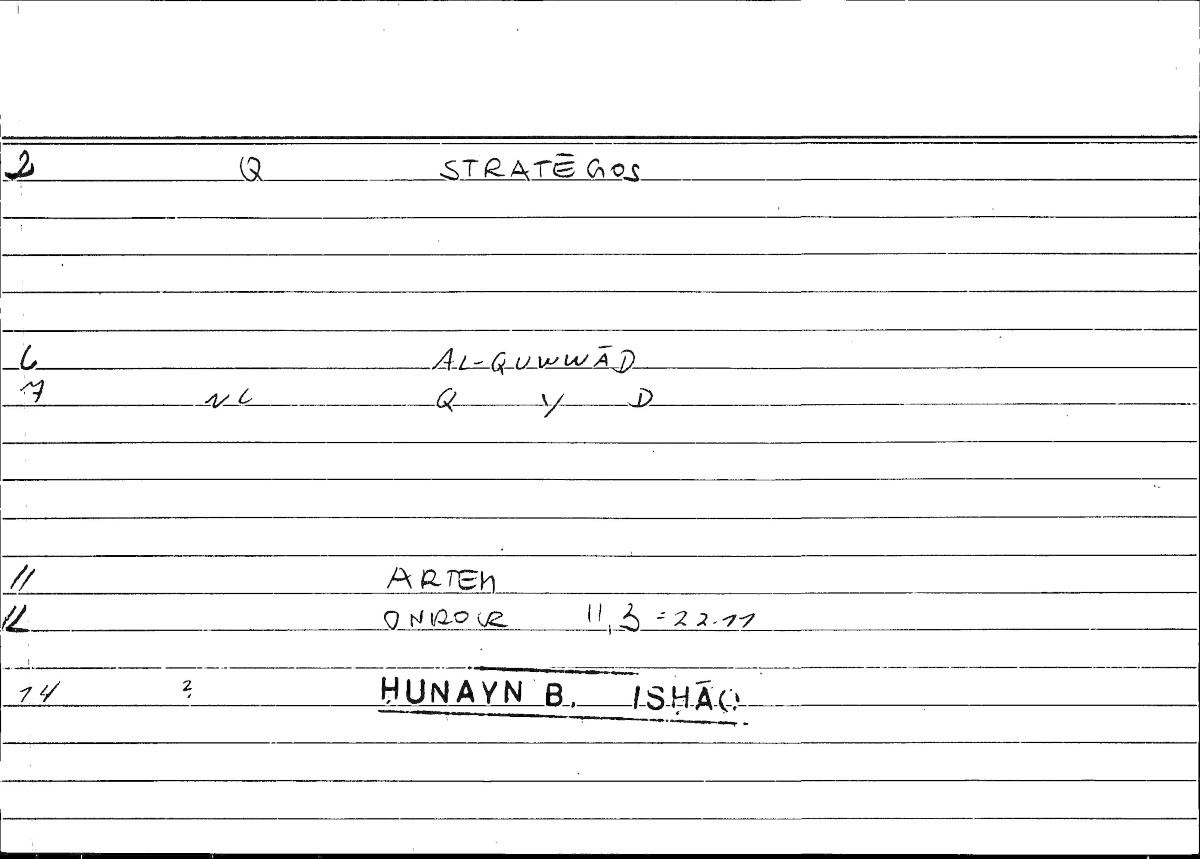 2 Q STRATĒGOS
6 AL-QUWWĀD
7 NC Q W D
11 ARTEM
12 ONIROCR II,3 = 22.11
14 ? ḤUNAYN B. ISḤĀQ